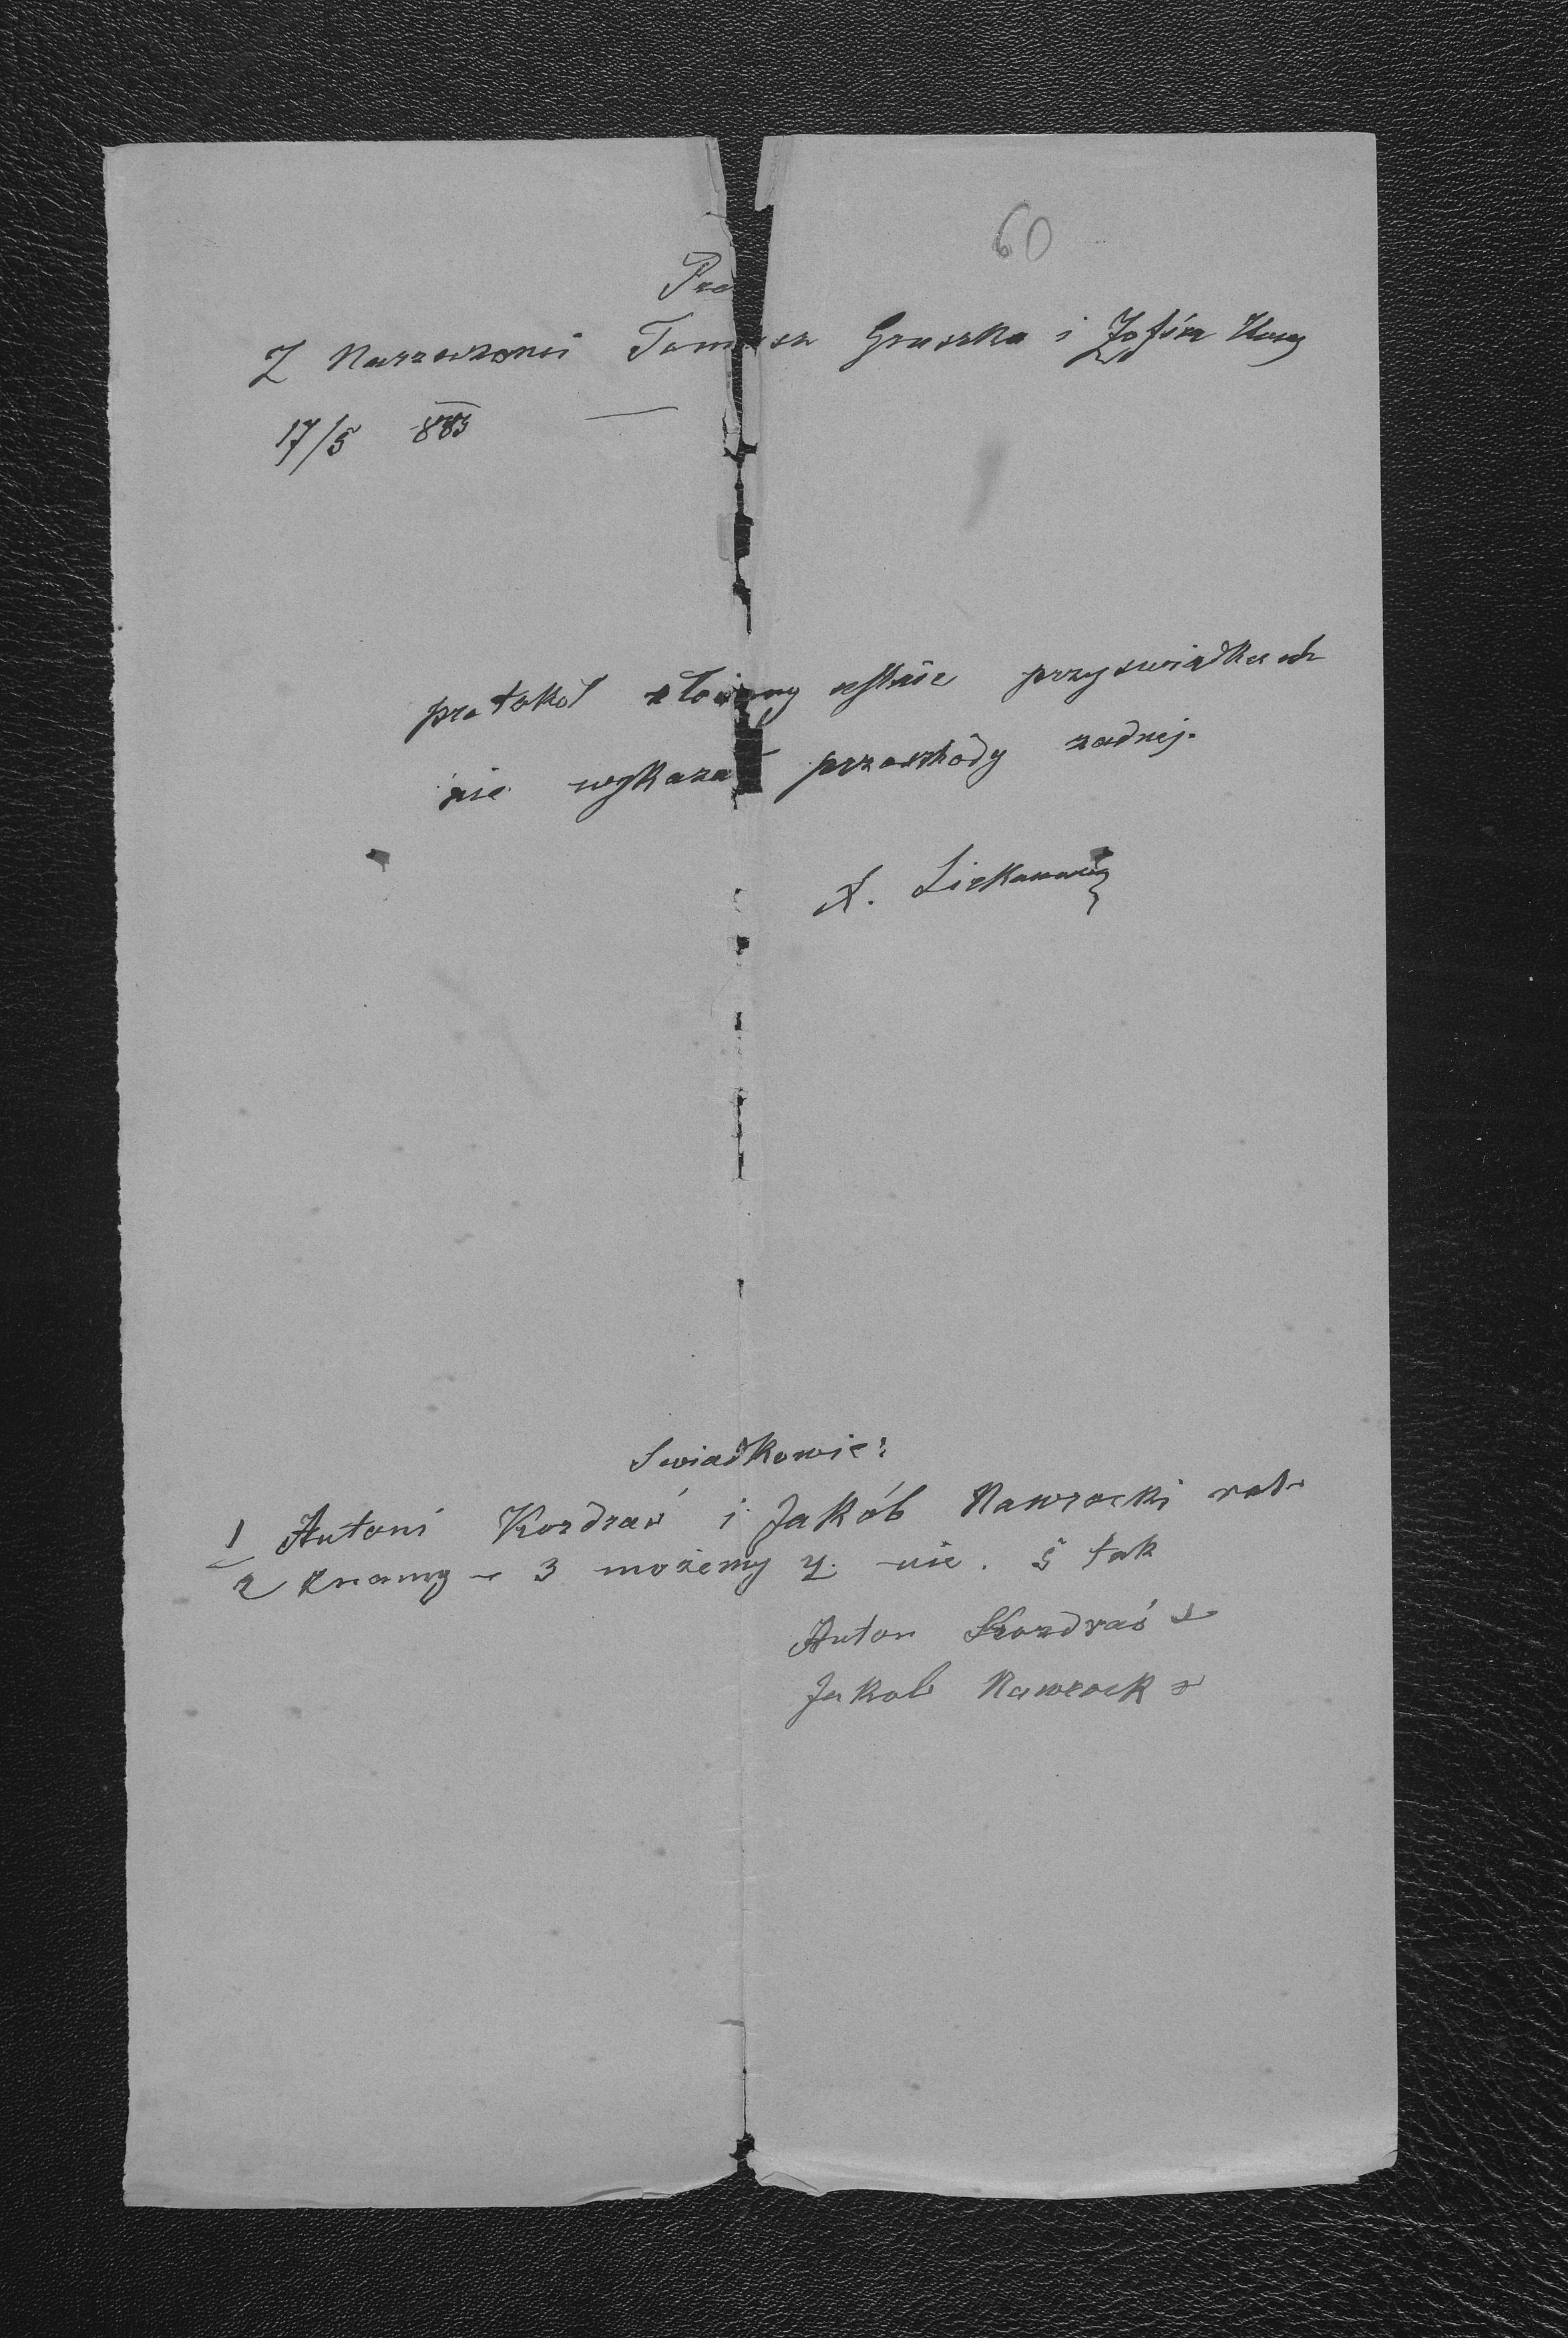 60
Pro
Z Narzeczonei Tomasz Gruszka i Zofiia
17/5 883
protokol złoiony ustnie przy swiadkach
nie wykazał przeszkody zadnej.
X.
Swiadkowie:
1 Antoni Kozdraś i Jakób Nawrocki rol.
2 znamy – 3 możemy 4. nie. 5 tak
Anton Kozdraś
Jakob Nawrock